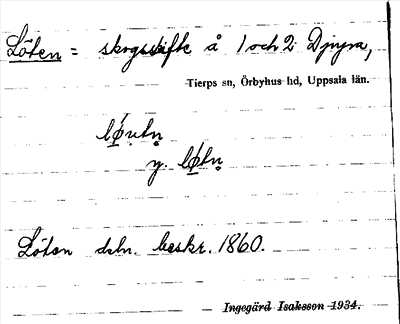 Löten = skogsskifte å 1 och 2 Djnyra,
Tierps sn, Örbyhus hd, Uppsala län.
y.
Löten dsln. beskr. 1860.
Ingegärd Isaksson 1934.